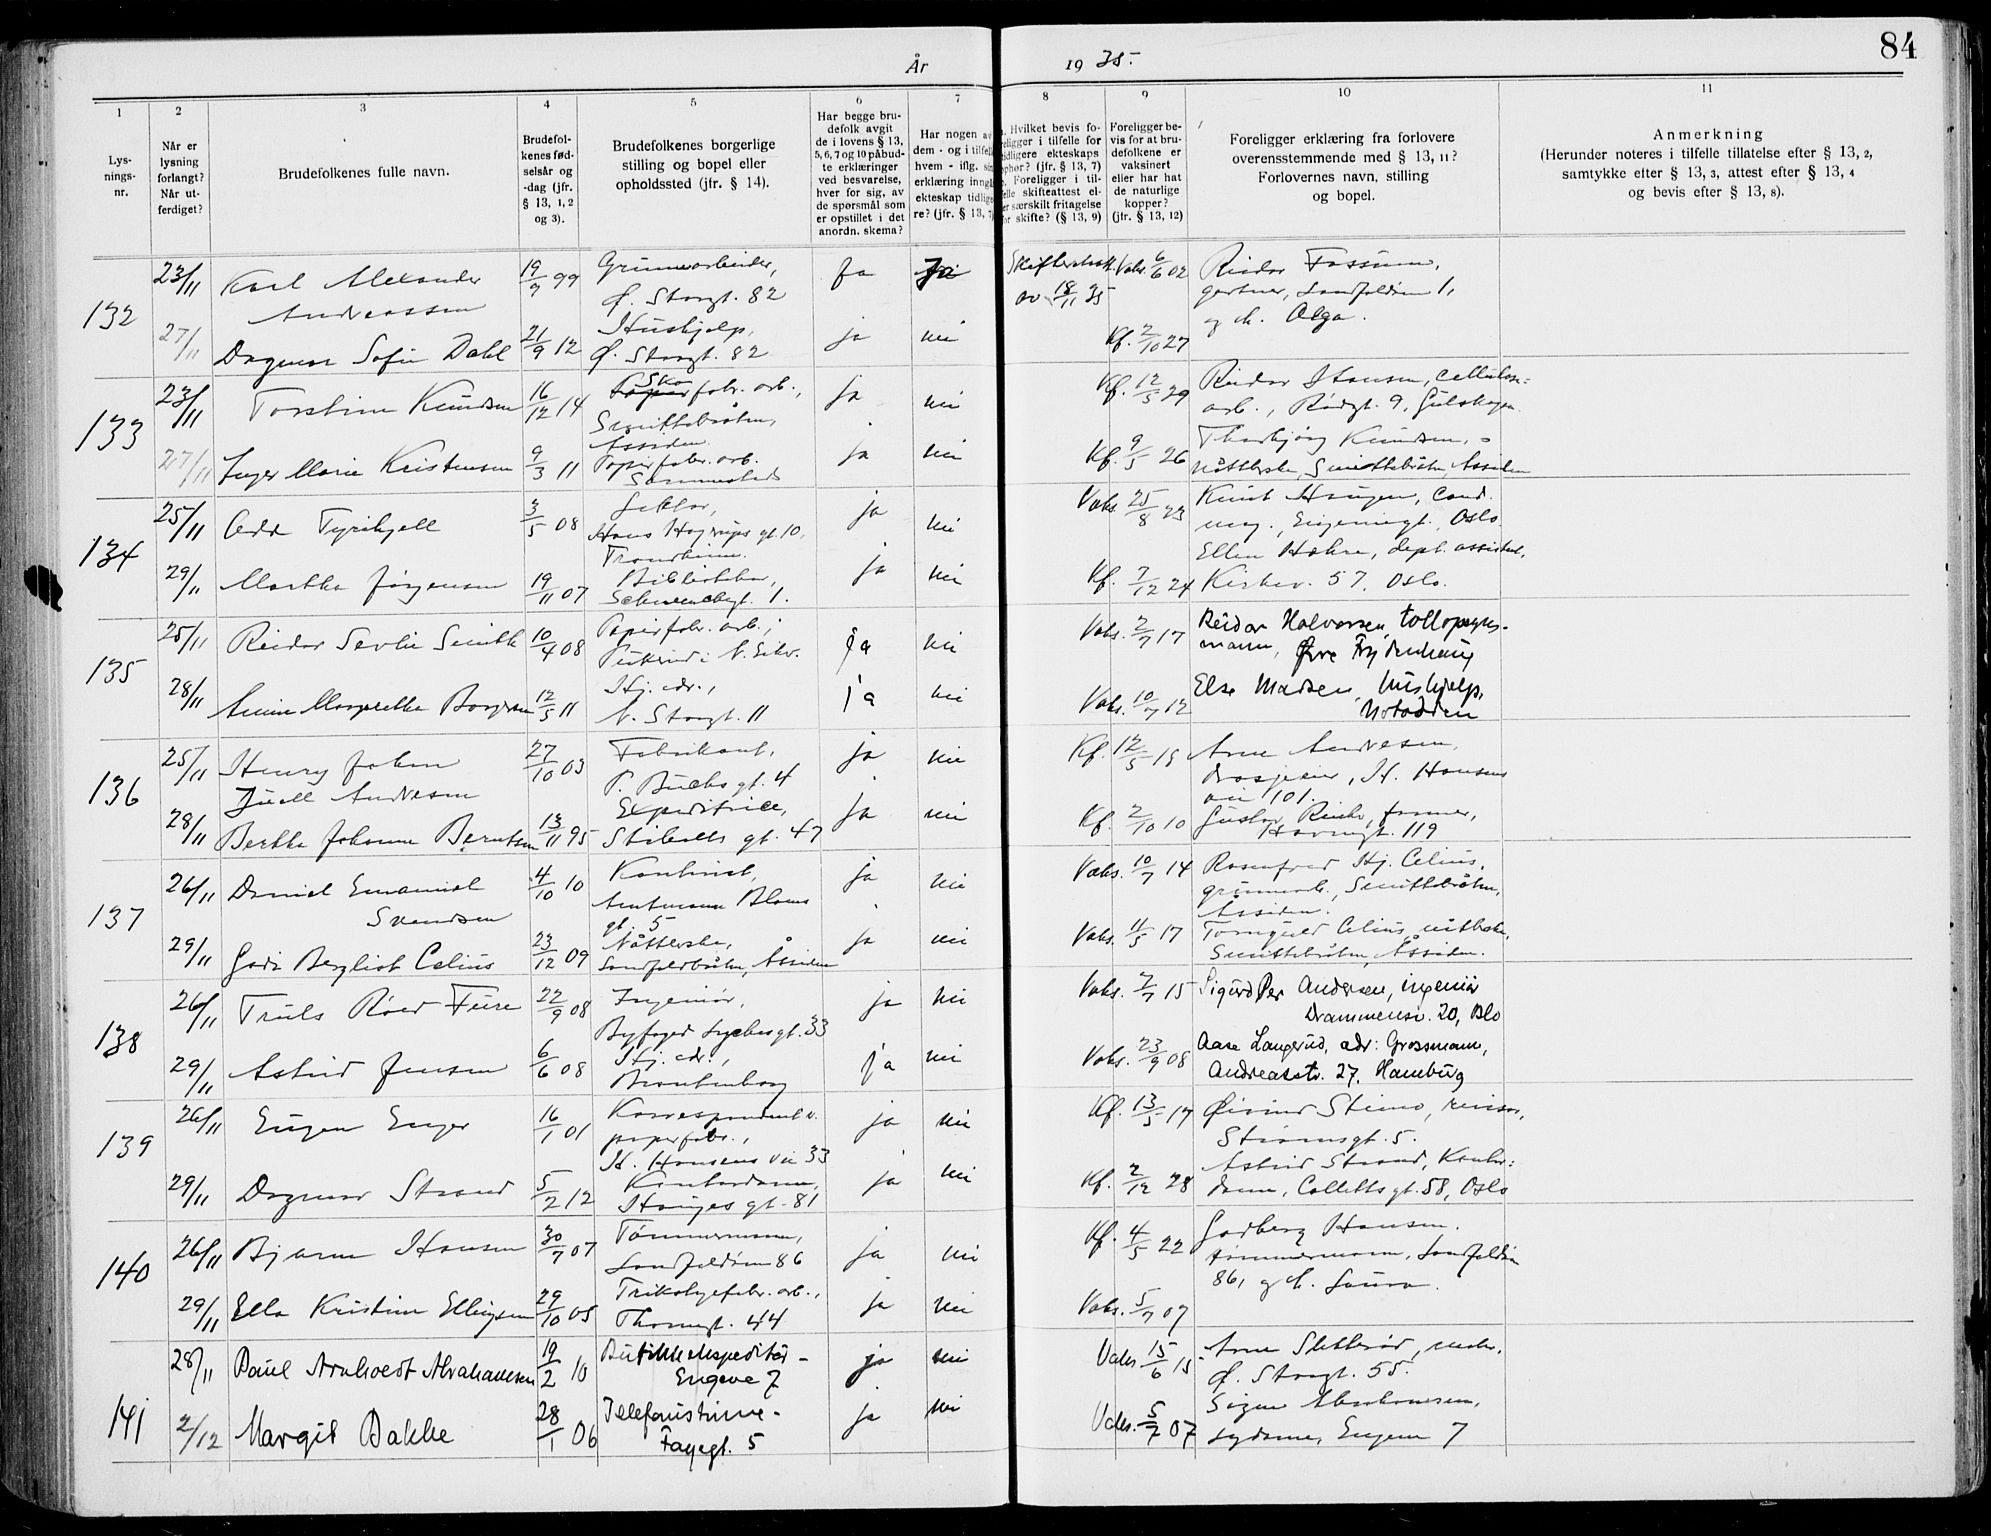 År 1935.
84
1 2 3 4 5 6 7 8 9 10 11
Lys-
nings-
nr.
Når er
lysning
forlangt?
Når ut-
ferdiget?
Brudefolkenes fulle navn.
Brudefol-
kenes fød-
selsår og
-dag (jfr.
§ 13, 1, 2
og 3).
Brudefolkenes borgerlige
stilling og bopel eller
opholdssted (jfr. § 14).
Har begge bru-
defolk avgit
de i lovens § 13,
5, 6, 7 og 10 påbud-
te erklæringer
ved besvarelse,
hver for sig, av
de spørsmål som
er opstillet i det
anordn. skema?
Har nogen av
dem - og i tilfelle
hvem - iflg. sin
erklæring inngå
ekteskap tidlige
re? (jfr. § 13, 7)
Hvilket bevis fo-
religger i tilfelle for
tidligere ekteskaps
ophør? (jfr. § 13, 7)
Foreligger i til-
felle skifteattest el-
ler særskilt fritagelse
for skifte? (§ 13, 9)
Foreligger be-
vis for at bru-
defolkene er
vaksinert
eller har hat
de naturlige
kopper?
(jfr. § 13, 12)
Foreligger erklæring fra forlovere
overensstemmende med § 13, 11?
Forlovernes navn, stilling
og bopel.
Anmerkning
(Herunder noteres i tilfelle tillatelse efter § 13, 2,
samtykke efter § 13, 3, attest efter § 13, 4
og bevis efter § 13, 8).
132
23/11 Karl Alexander Andreassen 19/9 99 Ø. Storgt. 82 ja 18/11 35 Vaks. 6/6 02 Reidar Fossum,
gartner, 1,
og h. Olga.
27/11 Dagmar Sofie Dahl 21/9 12 Hushjelp, Ø. Storgt. 82 ja nei Kf. 2/10 27
133
23/11 Torstein Knudsen 16/12 14 Sko fabr. arb., Smittebråten, Åssiden. ja nei Kf. 12/5 29 Reidar Hansen, cellulose-
arb., Rødgt. 9, Gulskogen
27/11 Inger Marie Kristensen 9/3 11 Papirfabr. arb. Sammesteds ja nei Kf. 9/5 26 Thorbjørg Knudsen,
Smittebråten, Åssiden
134
25/11 Odd Tyrihjell 3/5 08 Lektor, gt. 10, Trondheim. ja nei Vaks. 25/8 23 Knut Haugen, cand.
mag., Oslo.
29/11 Martha Jørgensen 19/11 07 Schwenckegt. 1. ja nei Kf. 7/12 24 Ellen Hæhre, dept. assistent,
Kirkev. 57, Oslo.
135
25/11 Reidar Sevlie Smith 10/4 08 Papirfabr. arb., ja nei Vaks. 2/7 17 Reidar Halvorsen tollopsyns-
mann, Øvre Frydenhaug
28/11 Anna Margrethe Borgersen 12/5 11 Hj. vdr., N. Storgt. 11 ja nei Vaks. 10/7 12 Else Madsen, hushjelp,
Notodden
136
25/11 Henry Johan Juell Andresen 27/10 03 Fabrikant, P. Buchs gt. 4 ja nei Kf. 12/5 19 Arne Andresen,
drosjeeier, H. Hansens
vei 101.
28/11 Berthe Johanne Berntsen 13/11 95 Expeditrice, Stibolts gt. 47 ja nei Kf. 2/10 10 Gustav
Havnegt. 119
137
26/11 Daniel Emanuel Svendsen 4/10 10 Kontorist, Amtmann Bloms gt. 5 ja nei Vaks. 10/7 14 Rosenfred Hj. Celius,
Smittebråten,
Åssiden.
29/11 Bergliot Celius 23/12 09 Åssiden ja nei Vaks. 11/5 17 Celius,
Smittebråten, Åssiden.
138
26/11 Truls Roed Fure 22/9 08 Ingeniør, Byfoged Lyches gt. 33 ja nei Vaks. 2/7 15 Sigurd Per Andersen, ingeniør
Drammensv. 20, Oslo
29/11 Astrid Jensen 6/6 08 Hj. vdr., ja nei Vaks. 23/9 08 Aase Langerud, adr: Grossmann,
Andreasstr. 27, Hamburg
139
26/11 Eugen Enger 16/1 01 Korrespondent v. papirfabr., H. Hansens vei 33 ja nei Kf. 13/5 17 Øivind Steino, revisor,
Strømsgt. 5.
29/11 Dagmar Strand 5/2 12 Kontordame, Hauges gt. 81 ja nei Kf. 2/12 28 Astrid Strand, Kontor-
dame, Colletts gt. 58, Oslo
140
26/11 Bjarne Hansen 30/7 07 Tømmermann, 86 ja nei Kf. 4/5 22 Godberg Hansen,
tømmermann,
86, og h. Laura.
29/11 Ella Kristine Ellingsen 29/10 05 Trikotagefabr. arb., Thornegt. 44 ja nei Vaks. 5/7 07
141
28/11 Paul Arnholdt Abrahamsen 19/2 10 Butikkekspeditør - Engene 7 ja nei Vaks 15/6 15 Arne Sletterød,
Ø. Storgt. 55.
2/12 Margit Bakke 28/1 06 Telefonistinne - Fayegt. 5 ja nei Vaks. 5/7 07 Signe Abrahamsen,
Engene 7